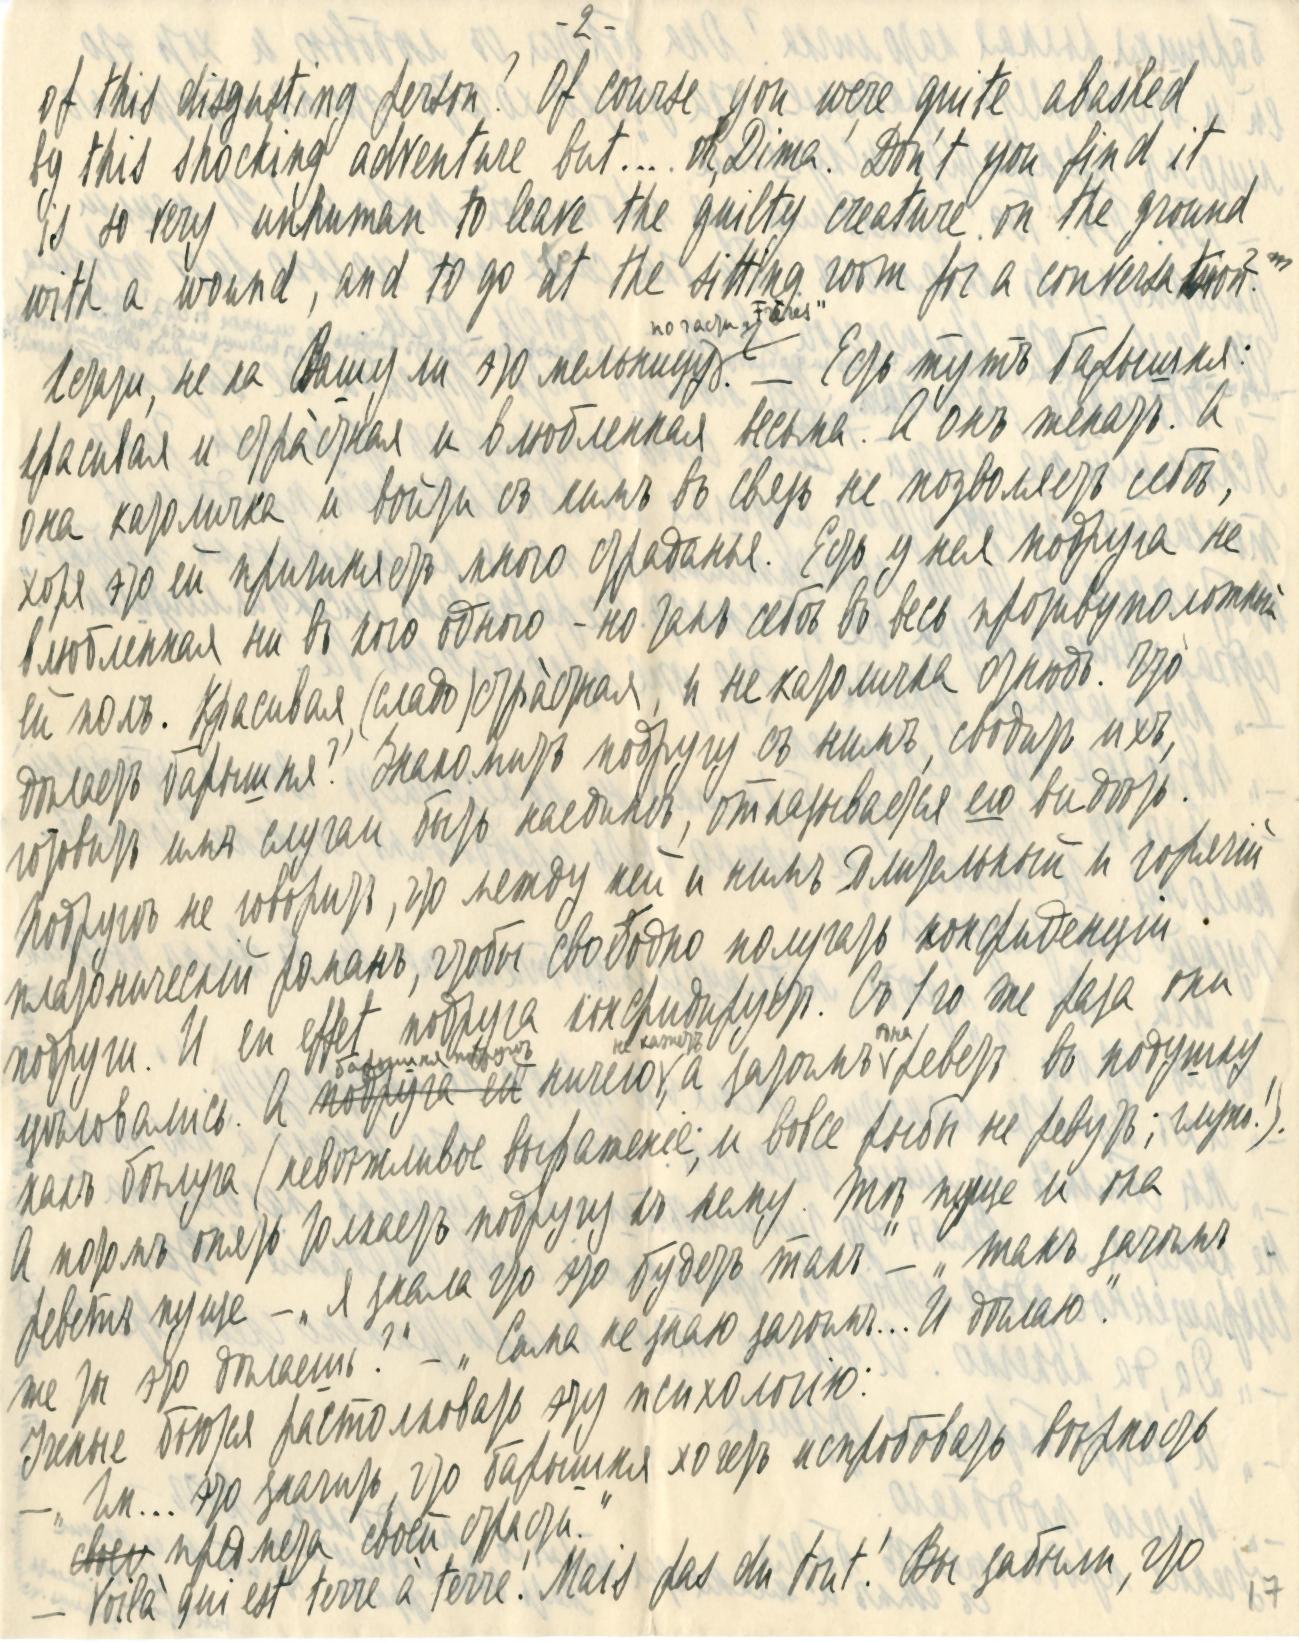 -2-
of this disgusting person? Of course you were quite abashed
by this shocking adventure but.... oh, Dima! Don't you find it
is so very unhuman to leave the guilty creature on the ground
with a wound, and to go at the sitting room for a conversation?"
по части „Frères"
Кстати, не на Вашу ли это мельницу? — Есть тутъ барышня:
красивая и стрàстная и влюбленная весьма. А онъ женатъ. А
она католичка и войти съ нимъ въ связь не позволяетъ себѣ,
хотя это ей причиняетъ много страданья. Есть у нея подруга не
влюбленная ни въ кого одного - но такъ себѣ въ весь противуположный
ей полъ. Красивая, (сладо)стрàстная, и не католичка отнюдь. Что
дѣлаетъ барышня? Знакомитъ подругу съ нимъ, сводитъ ихъ,
готовитъ имъ случаи быть наединѣ, отказывается его видѣть.
Подругѣ не говоритъ, что между ней и нимъ длительный и горячiй
платоническiй романъ, чтобы свободно получать конфиденцiи
подруги. И en effet подруга конфидируетъ. Съ 1го же раза они
барышня подругѣ не кажетъ она
цѣловались. А подруга ей ничего, а затѣмъ реветъ въ подушку
какъ бѣлуга (невѣжливое выраженiе; и вовсе рыбы не ревутъ; глупо!).
А потомъ опять толкаетъ подругу къ нему. Тѣ пуще и она
реветъ пуще —„Я знала что это будетъ такъ" — „такъ зачѣмъ
же ты это дѣлаешь?" — „Сама не знаю зачѣмъ... И дѣлаю".
Ученые бьются растолковать эту психологiю:
—„Гм... это значитъ, что барышня хочетъ испробовать вѣрность
своего предмета своей страсти."
— Voilà qui est terre à terre! Mais pas du tout! Вы забыли, что
17